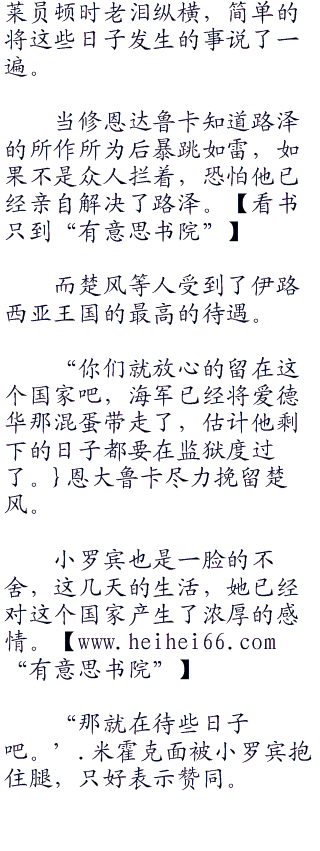 莱员顿时老泪纵横，简单的
将这些日子发生的事说了一
遍。
当修恩达鲁卡知道路泽
的所作所为后暴跳如雷，如
果不是众人拦着，恐怕他已
经亲自解决了路泽。【看书
只到“有意思书院”】
而楚风等人受到了伊路
西亚王国的最高的待遇。
“你们就放心的留在这
个国家吧，海军已经将爱德
华那混蛋带走了，估计他剩
下的日子都要在监狱度过
了。}恩大鲁卡尽力挽留楚
风。
小罗宾也是一脸的不
舍，这几天的生活，她已经
对这个国家产生了浓厚的感
情。【www.heihei66.com
“有意思书院”】
“那就在待些日子
吧。’.米霍克面被小罗宾抱
住腿，只好表示赞同。